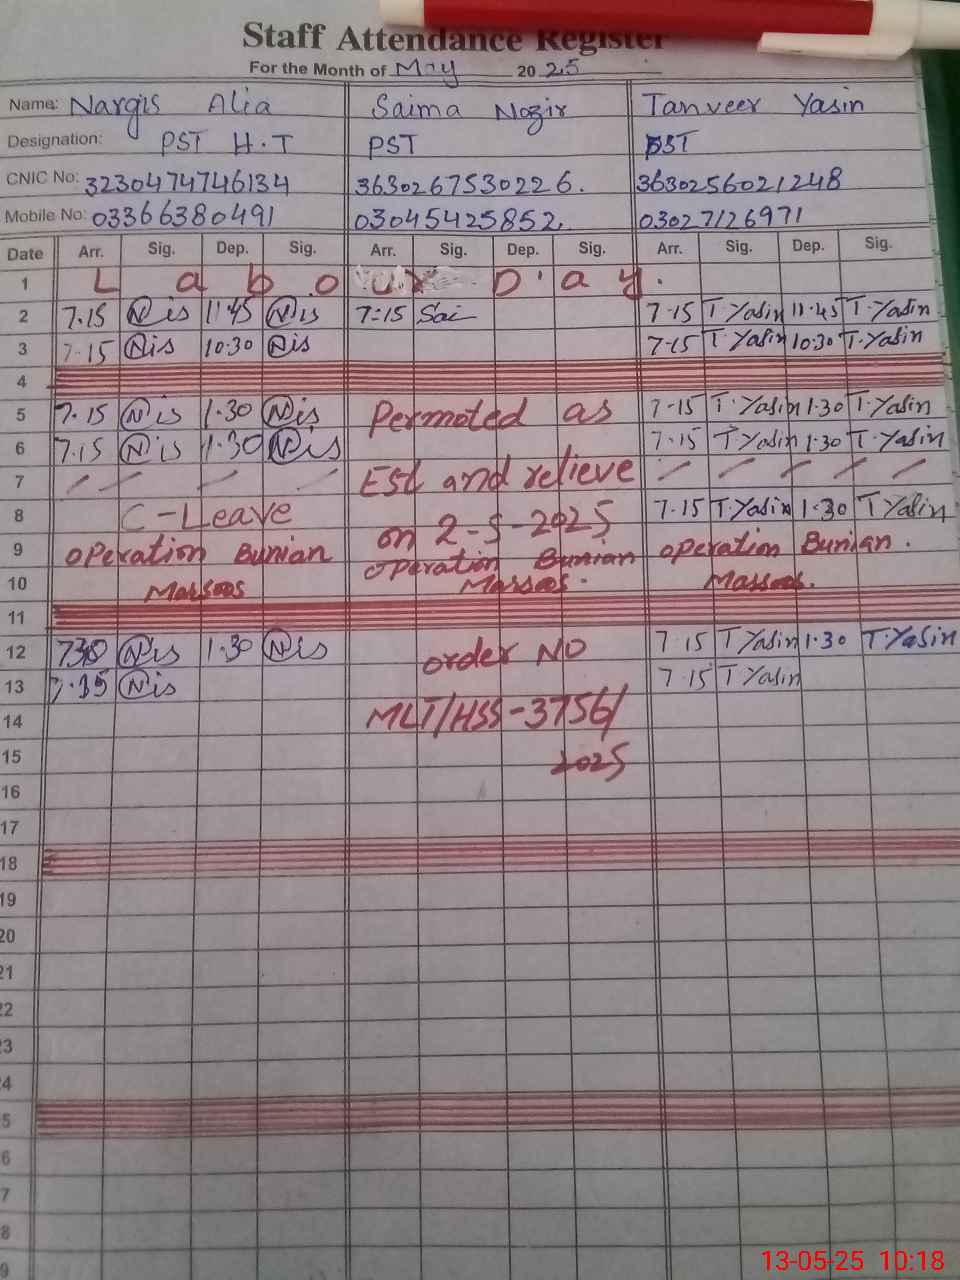 Staff Attendance Register
For the Month of May 2025
Name: Nargis Alia Saima Nazir Tanveer Yasin
Designation: PST H.T PST PST
CNIC No: 3230474746134 3630267530226. 3630256021248
Mobile No: 03366380491 03045425852, 03027126971
Date Arr. Sig. Dep. Sig. Arr. Sig. Dep. Sig. Arr. Sig. Dep. Sig.
1 L a b o u r D a y.
2 7.15 Nis 11:45 Nis 7:15 Sai 7-15 T.Yasin 11.45 T.Yasin
3 7-15 Nis 10:30 Nis 7-15 T.Yasin 10:30 T.Yasin
4
5 7.15 Nis 1.30 Nis Permoted as 7-15 T.Yasin 1.30 T.Yasin
6 7.15 Nis 1.30 Nis 7.15 T.Yasin 1.30 T.Yasin
7 Est and relieve
8 C-Leave on 2-5-2025 7.15 T.Yasin 1.30 T Yasin
9 operation Bunian operation Bunian operation Bunian.
10 Marsoos Marsoos. Marsoos.
11
12 730 Nis 1.30 Nis order NO 7.15 T Yasin 1.30 T.Yasin
13 7.15 Nis 7.15 T Yasin
14 MLT/HSS-3756/
15 2025
16
17
18
19
20
21
22
23
24
5
6
7
8
9
13-05-25 10:18